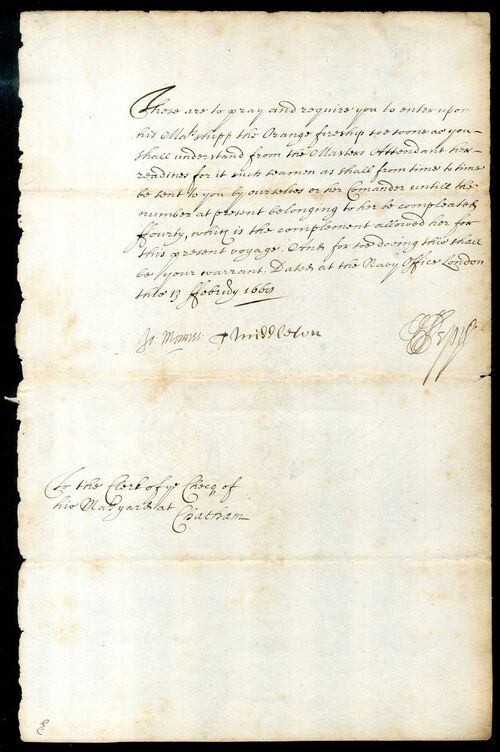 These are to pray and require you to enter upon
his Mats. shipp the Orange fireship soe soone as you
shall understand from the Masters Attendant her
readines for it such seamen as shall from time to time
be sent to you by ourselves or her Comander untill the
number at present belonging to her be compleated
ffourty, which is the complement allowed her for
this present voyage. And for soe doeing this shall
be your warrant. Dated at the Navy Office London
this 13 ffebruy 1669
Jo Mennes Middleton SPepys
To the Clerk of ye Checq of
his Mats yard at
Chatham